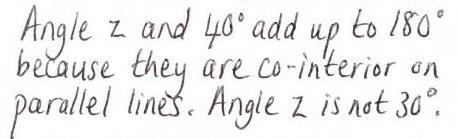 Angle z and 40° add up to 180°
because they are co-interior on
parallel lines. Angle z is not 30°.